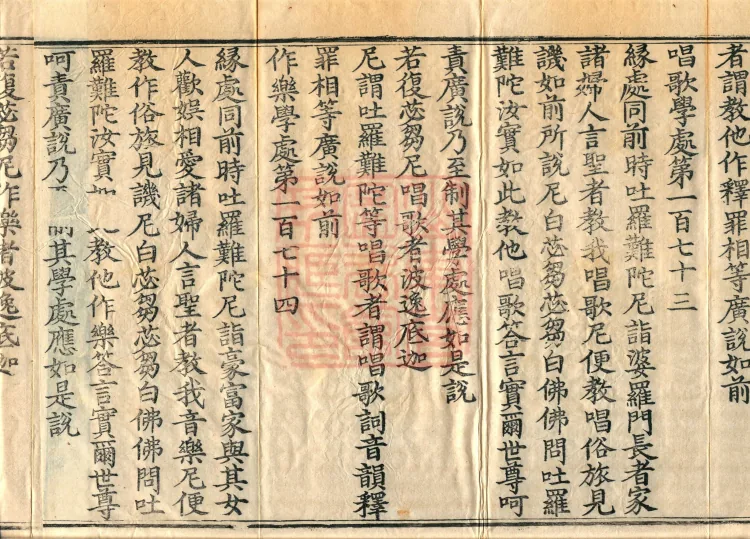 者謂教他作釋罪相等廣說如前
唱歌學處第一百七十三
緣處同前時吐羅難陀尼詣婆羅門長者家
諸婦人言聖者教我唱歌尼便教唱俗旅見
譏如前所說尼白苾芻苾芻白佛佛問吐羅
難陀汝實如此教他唱歌答言實爾世尊呵
責廣說乃至制其學處應如是說
若復苾芻尼唱歌者波逸底迦
尼謂吐羅難陀等唱歌者謂唱歌詞音韻釋
罪相等廣說如前
作樂學處第一百七十四
緣處同前時吐羅難陀尼詣豪富家與其女
人歡娛相愛諸婦人言聖者教我音樂尼便
教作俗旅見譏尼白苾芻苾芻白佛佛問吐
羅難陀汝實如教他作樂答言實爾世尊
呵責廣說乃制其學處應如是說
若復苾芻尼作樂者波逸底迦